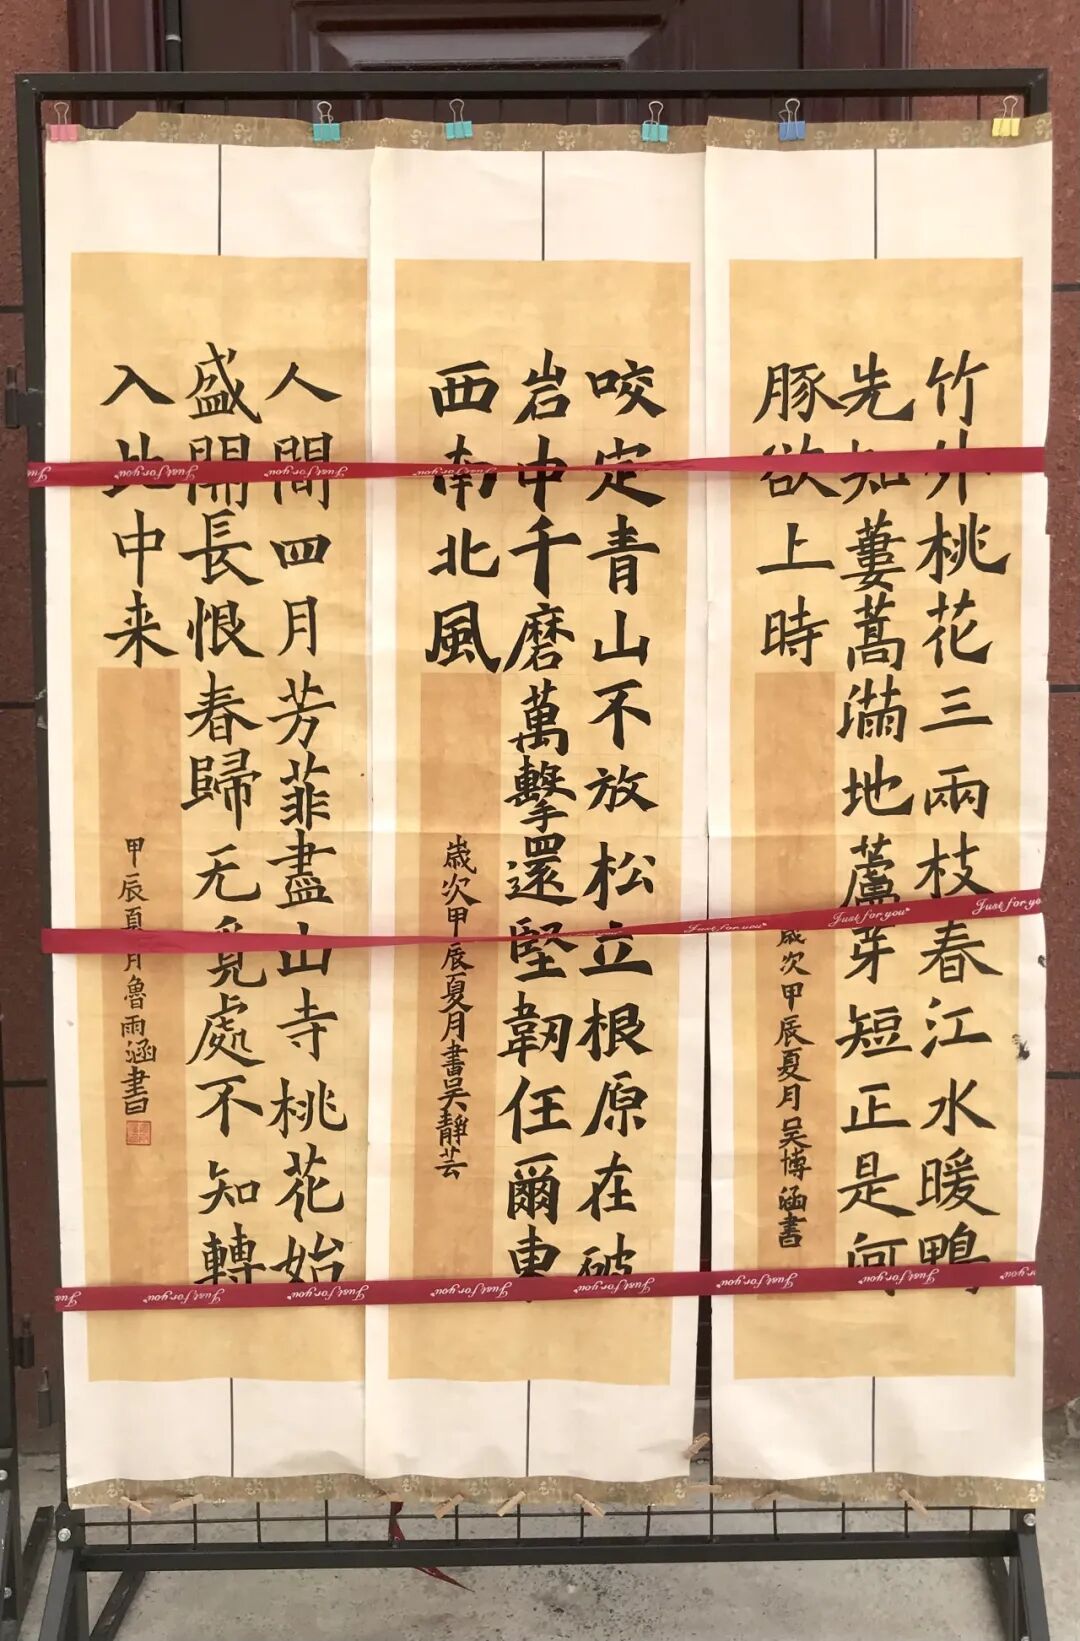 竹外桃花三兩枝春江水暖鴨
先知蔞蒿滿地蘆芽短正是何
豚欲上時
歲次甲辰夏月吳博涵書
咬定青山不放松立根原在破
岩中千磨萬擊還堅韌任爾東
西南北風
歲次甲辰夏月書吳靜芸
人間四月芳菲盡山寺桃花始
盛開長恨春歸无覓處不知轉
入此中来
甲辰夏月魯雨涵書
Just for you Just for you Just for you
Just for you Just for you Just for you
Just for you Just for you Just for you Just for you Just for you Just for you Just for you